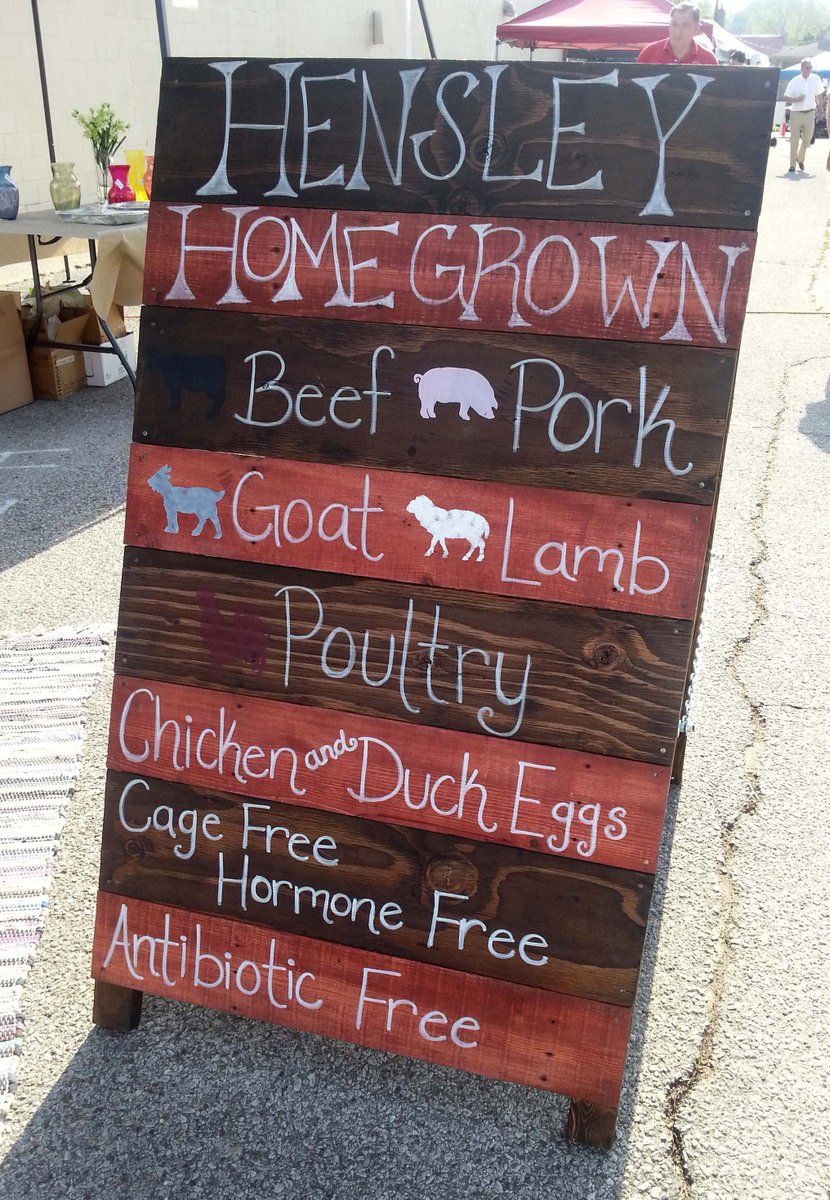 HENSLEY
HOMEGROWN
Beef Pork
Goat Lamb
Poultry
Chicken and Duck Eggs
Cage Free
Hormone Free
Antibiotic Free